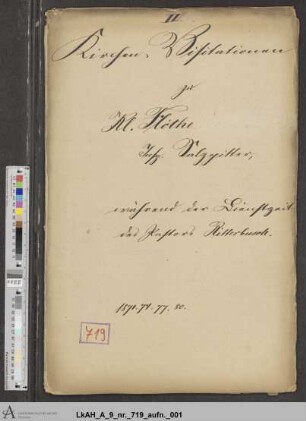 II
Kirchen-Visitationen
zu
Kl. Flöthe
Insp. Salzgitter,
während der Dienstzeit
des Pastors Ritterbusch.
1871. 74. 77. 80.
719
LkAH_A_9_nr._719_aufn._001